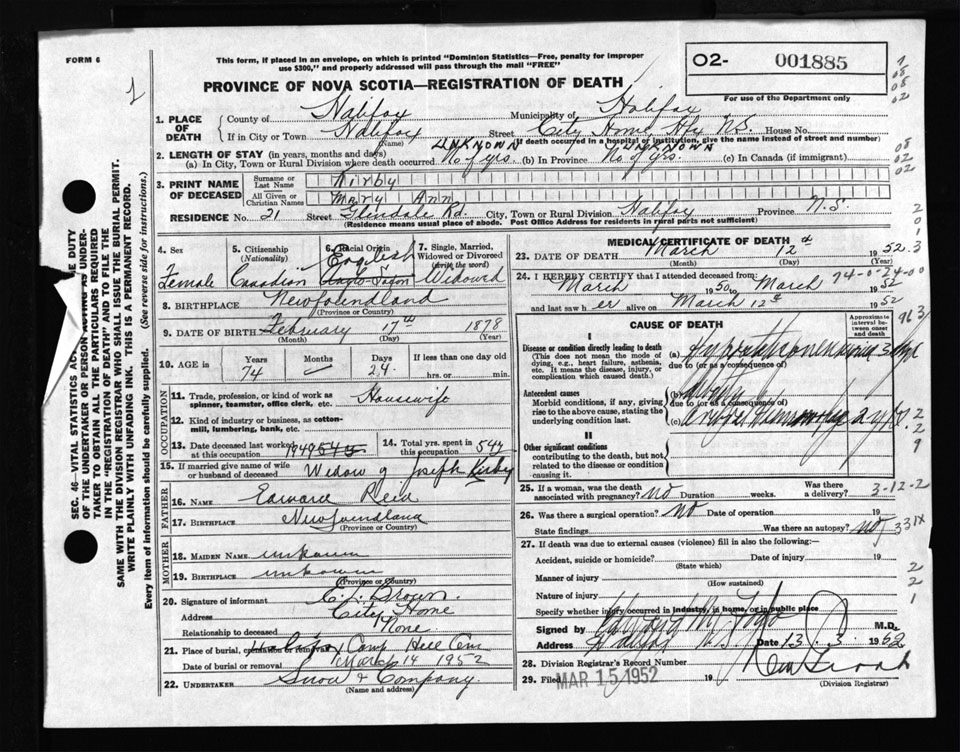 FORM 6
This form, if placed in an envelope, on which is printed "Dominion Statistics—Free, penalty for improper
use $300," and properly addressed will pass through the mail "FREE"
O2- 001885
PROVINCE OF NOVA SCOTIA—REGISTRATION OF DEATH
For use of the Department only
1. PLACE OF DEATH
County of Halifax Municipality of Halifax
If in City or Town Halifax Street City Home, Hfx N.S. House No.
(Name) (If death occurred in a hospital or institution, give the name instead of street and number)
2. LENGTH OF STAY (in years, months and days) UNKNOWN UNKNOWN
(a) In City, Town or Rural Division where death occurred No of yrs. (b) In Province No of yrs. (c) In Canada (if immigrant)
3. PRINT NAME OF DECEASED
Surname or Last Name Kirby
All Given or Christian Names Mary Ann
RESIDENCE No. 21 Street Glendale Rd. City, Town or Rural Division Halifax Province N.S
(Residence means usual place of abode. Post Office Address for residents in rural parts not sufficient)
4. Sex
Female
5. Citizenship
(Nationality)
Canadian
6. Racial Origin
English
Anglo-Saxon
7. Single, Married, Widowed or Divorced
(write the word)
Widowed
8. BIRTHPLACE Newfoundland
(Province or Country)
9. DATE OF BIRTH February 17th 1878
(Month) (Day) (Year)
10. AGE in
Years Months Days If less than one day old
74 — 24 hrs. or min.
OCCUPATION
11. Trade, profession, or kind of work as
spinner, teamster, office clerk, etc. Housewife
12. Kind of industry or business, as cotton-
mill, lumbering, bank, etc.
13. Date deceased last worked
at this occupation 1949
14. Total yrs. spent in
this occupation 54y
15. If married give name of wife
or husband of deceased Widow of Joseph Kirby
FATHER
16. NAME Edward Reid
17. BIRTHPLACE Newfoundland
(Province or Country)
MOTHER
18. MAIDEN NAME unknown
19. BIRTHPLACE unknown
(Province or Country)
20. Signature of informant C. L. Brown.
Address City Home
Relationship to deceased None.
21. Place of burial, cremation or removal Camp Hill Cem
Date of burial or removal March 14 1952
22. UNDERTAKER Snow & Company.
(Name and address)
MEDICAL CERTIFICATE OF DEATH
23. DATE OF DEATH March 12th 1952
(Month) (Day) (Year)
24. I HEREBY CERTIFY that I attended deceased from
March 1950 to March 1952
and last saw her alive on March 12th 1952
CAUSE OF DEATH
Approximate interval between onset and death
I
Disease or condition directly leading to death
(This does not mean the mode of
dying, e.g., heart failure, asthenia,
etc. It means the disease, injury, or
complication which caused death.)
(a)
due to (or as a consequence of)
Antecedent causes
Morbid conditions, if any, giving
rise to the above cause, stating the
underlying condition last.
(b)
due to (or as a consequence of)
(c)
II
Other significant conditions
contributing to the death, but not
related to the disease or condition
causing it.
25. If a woman, was the death
associated with pregnancy? no Duration weeks. Was there a delivery?
3-12-2
26. Was there a surgical operation? no Date of operation 19
State findings Was there an autopsy? no
331X
27. If death was due to external causes (violence) fill in also the following:—
Accident, suicide or homicide? Date of injury 19
(State which)
Manner of injury
(How sustained)
Nature of injury
Specify whether injury occurred in industry, in home, or in public place
Signed by M.D.
Address Halifax N.S. Date 13.3 1952
28. Division Registrar's Record Number
29. Filed MAR 15 1952 19
(Division Registrar)
SEC. 46—VITAL STATISTICS
OF THE UNDERTAKER OR PERSON ACTING AS UNDER-
TAKER TO OBTAIN ALL THE PARTICULARS REQUIRED
IN THE "REGISTRATION OF DEATH" AND TO FILE THE
SAME WITH THE DIVISION REGISTRAR WHO SHALL ISSUE THE BURIAL PERMIT.
WRITE PLAINLY WITH UNFADING INK. THIS IS A PERMANENT RECORD.
Every item of information should be carefully supplied. (See reverse side for instructions.)